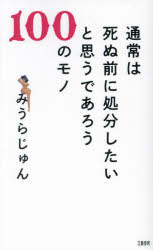 通常は
死ぬ前に処分したい
と思うであろう
100
のモノ
みうらじゅん
文藝春秋